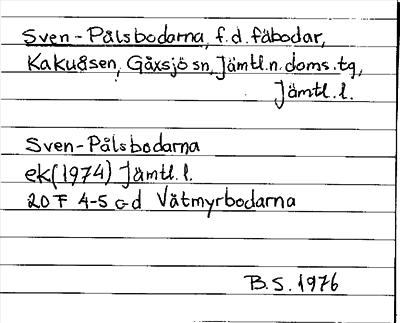 Sven-Pålsbodarna, f.d. fäbodar,
Kakuåsen, Gåxsjö sn, Jämtl.n. doms.tg,
Jämtl.l.
Sven-Pålsbodarna
ek(1974) Jämtl.l.
20F 4-5 c-d Våtmyrbodarna
B.S. 1976